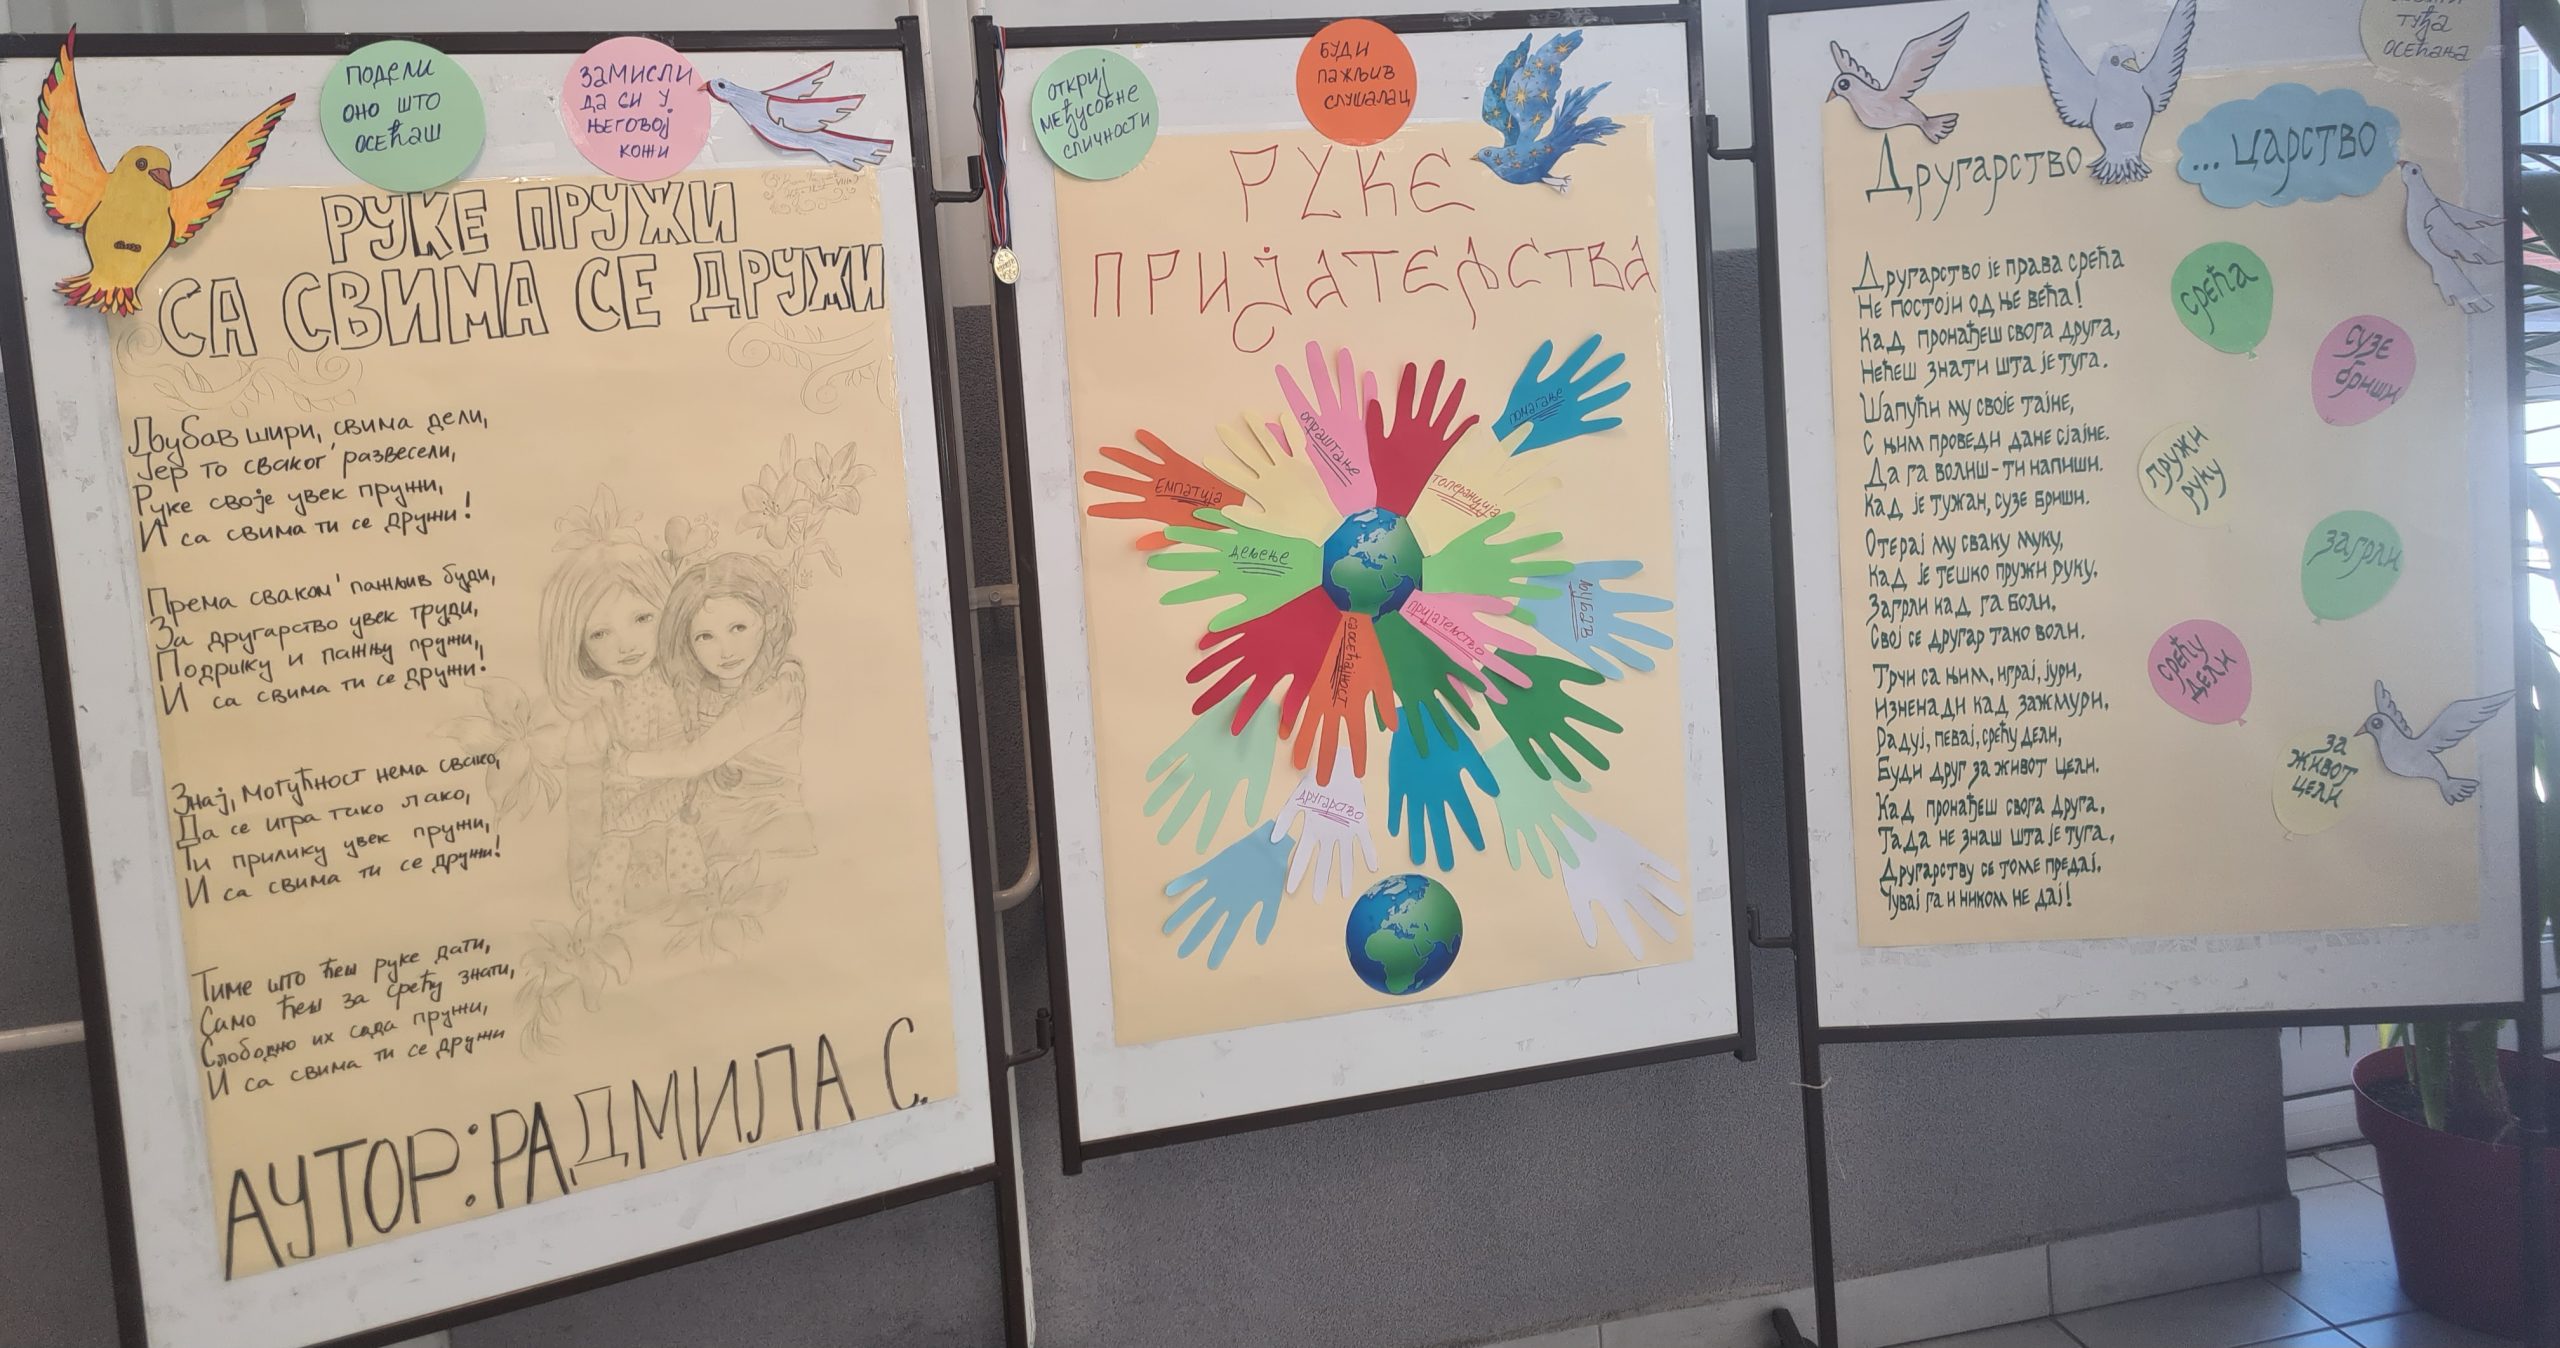 ПОДЕЛИ
ОНО ШТО
ОСЕЋАШ
ЗАМИСЛИ
ДА СИ У
ЊЕГОВОЈ
КОЖИ
РУКЕ ПРУЖИ
СА СВИМА СЕ ДРУЖИ
Љубав шири, свима дели,
Јер то сваког' развесели,
Руке своје увек пружи,
И са свима ти се дружи!
Према сваком' пажљив буди,
За другарство увек труди,
Подршку и пажњу пружи,
И са свима ти се дружи!
Знај, могућност нема свако,
Да се игра тако лако,
Ти прилику увек пружи,
И са свима ти се дружи!
Тиме што ћеш руке дати,
Само ћеш за срећу знати,
Слободно их сада пружи,
И са свима ти се дружи
АУТОР: РАДМИЛА С.
ОТКРИЈ
МЕЂУСОБНЕ
СЛИЧНОСТИ
БУДИ
ПАЖЉИВ
СЛУШАЛАЦ
РУКЕ
ПРИЈАТЕЉСТВА
помагање
опраштање
толеранција
Емпатија
дељење
љубав
пријатељство
саосећајност
другарство
туђа
осећања
Другарство
... царство
Другарство је права срећа
Не постоји од ње већа!
Кад пронађеш свога друга,
Нећеш знати шта је туга.
Шапући му своје тајне,
С њим проведи дане сјајне.
Да га волиш-ти напиши.
Кад је тужан, сузе бриши.
Отерај му сваку муку,
Кад је тешко пружи руку.
Загрли кад га боли,
Свој се другар тако воли.
Трчи са њим, играј, јури,
Изненади кад зажмури.
Радуј, певај, срећу дели,
Буди друг за живот цели.
Кад пронађеш свога друга,
Тада не знаш шта је туга,
Другарству се томе предај,
Чувај га и ником не дај!
срећа
сузе
бриши
пружи
руку
загрли
срећу
дели
за
живот
цели